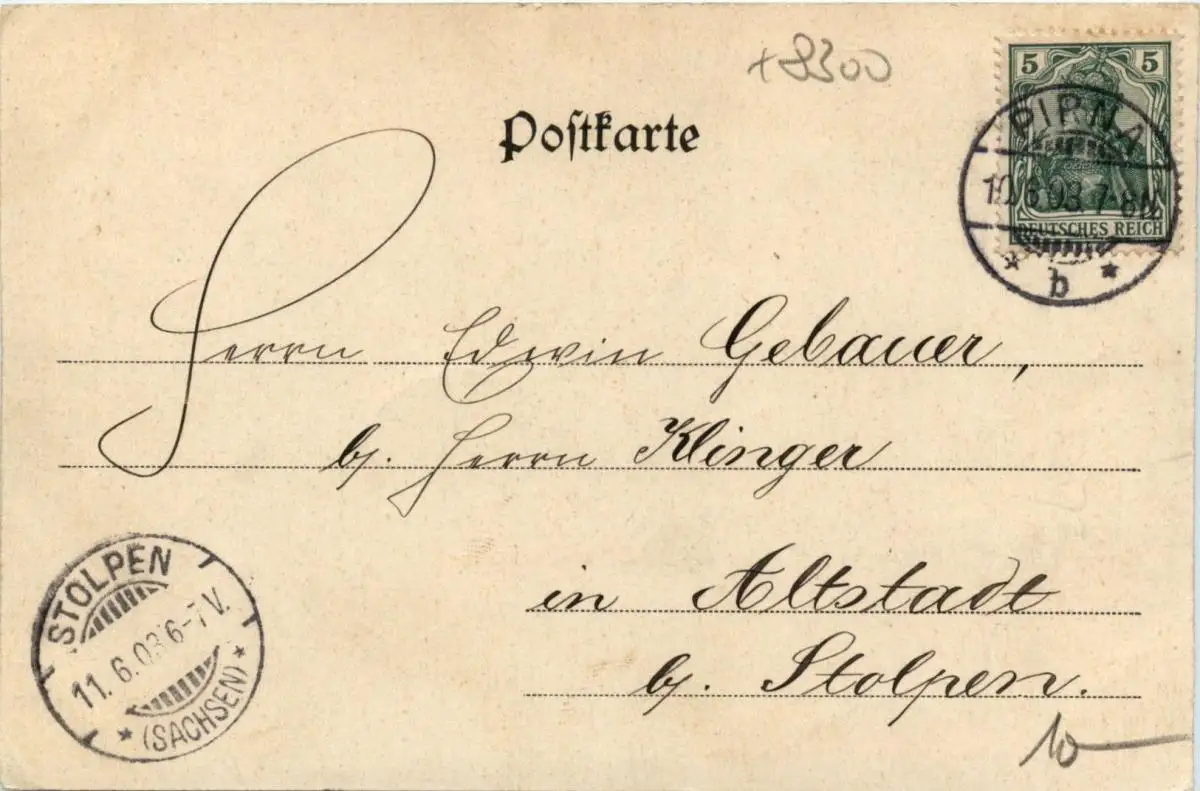 +8300
5 5
DEUTSCHES REICH
PIRNA
10.6.03.7-8N.
* b *
Poſtkarte
Herrn Edwin Gebauer,
b. Herrn Klinger
in Altstadt
b. Stolpen.
STOLPEN
11.6.03 6-7V.
* (SACHSEN) *
10